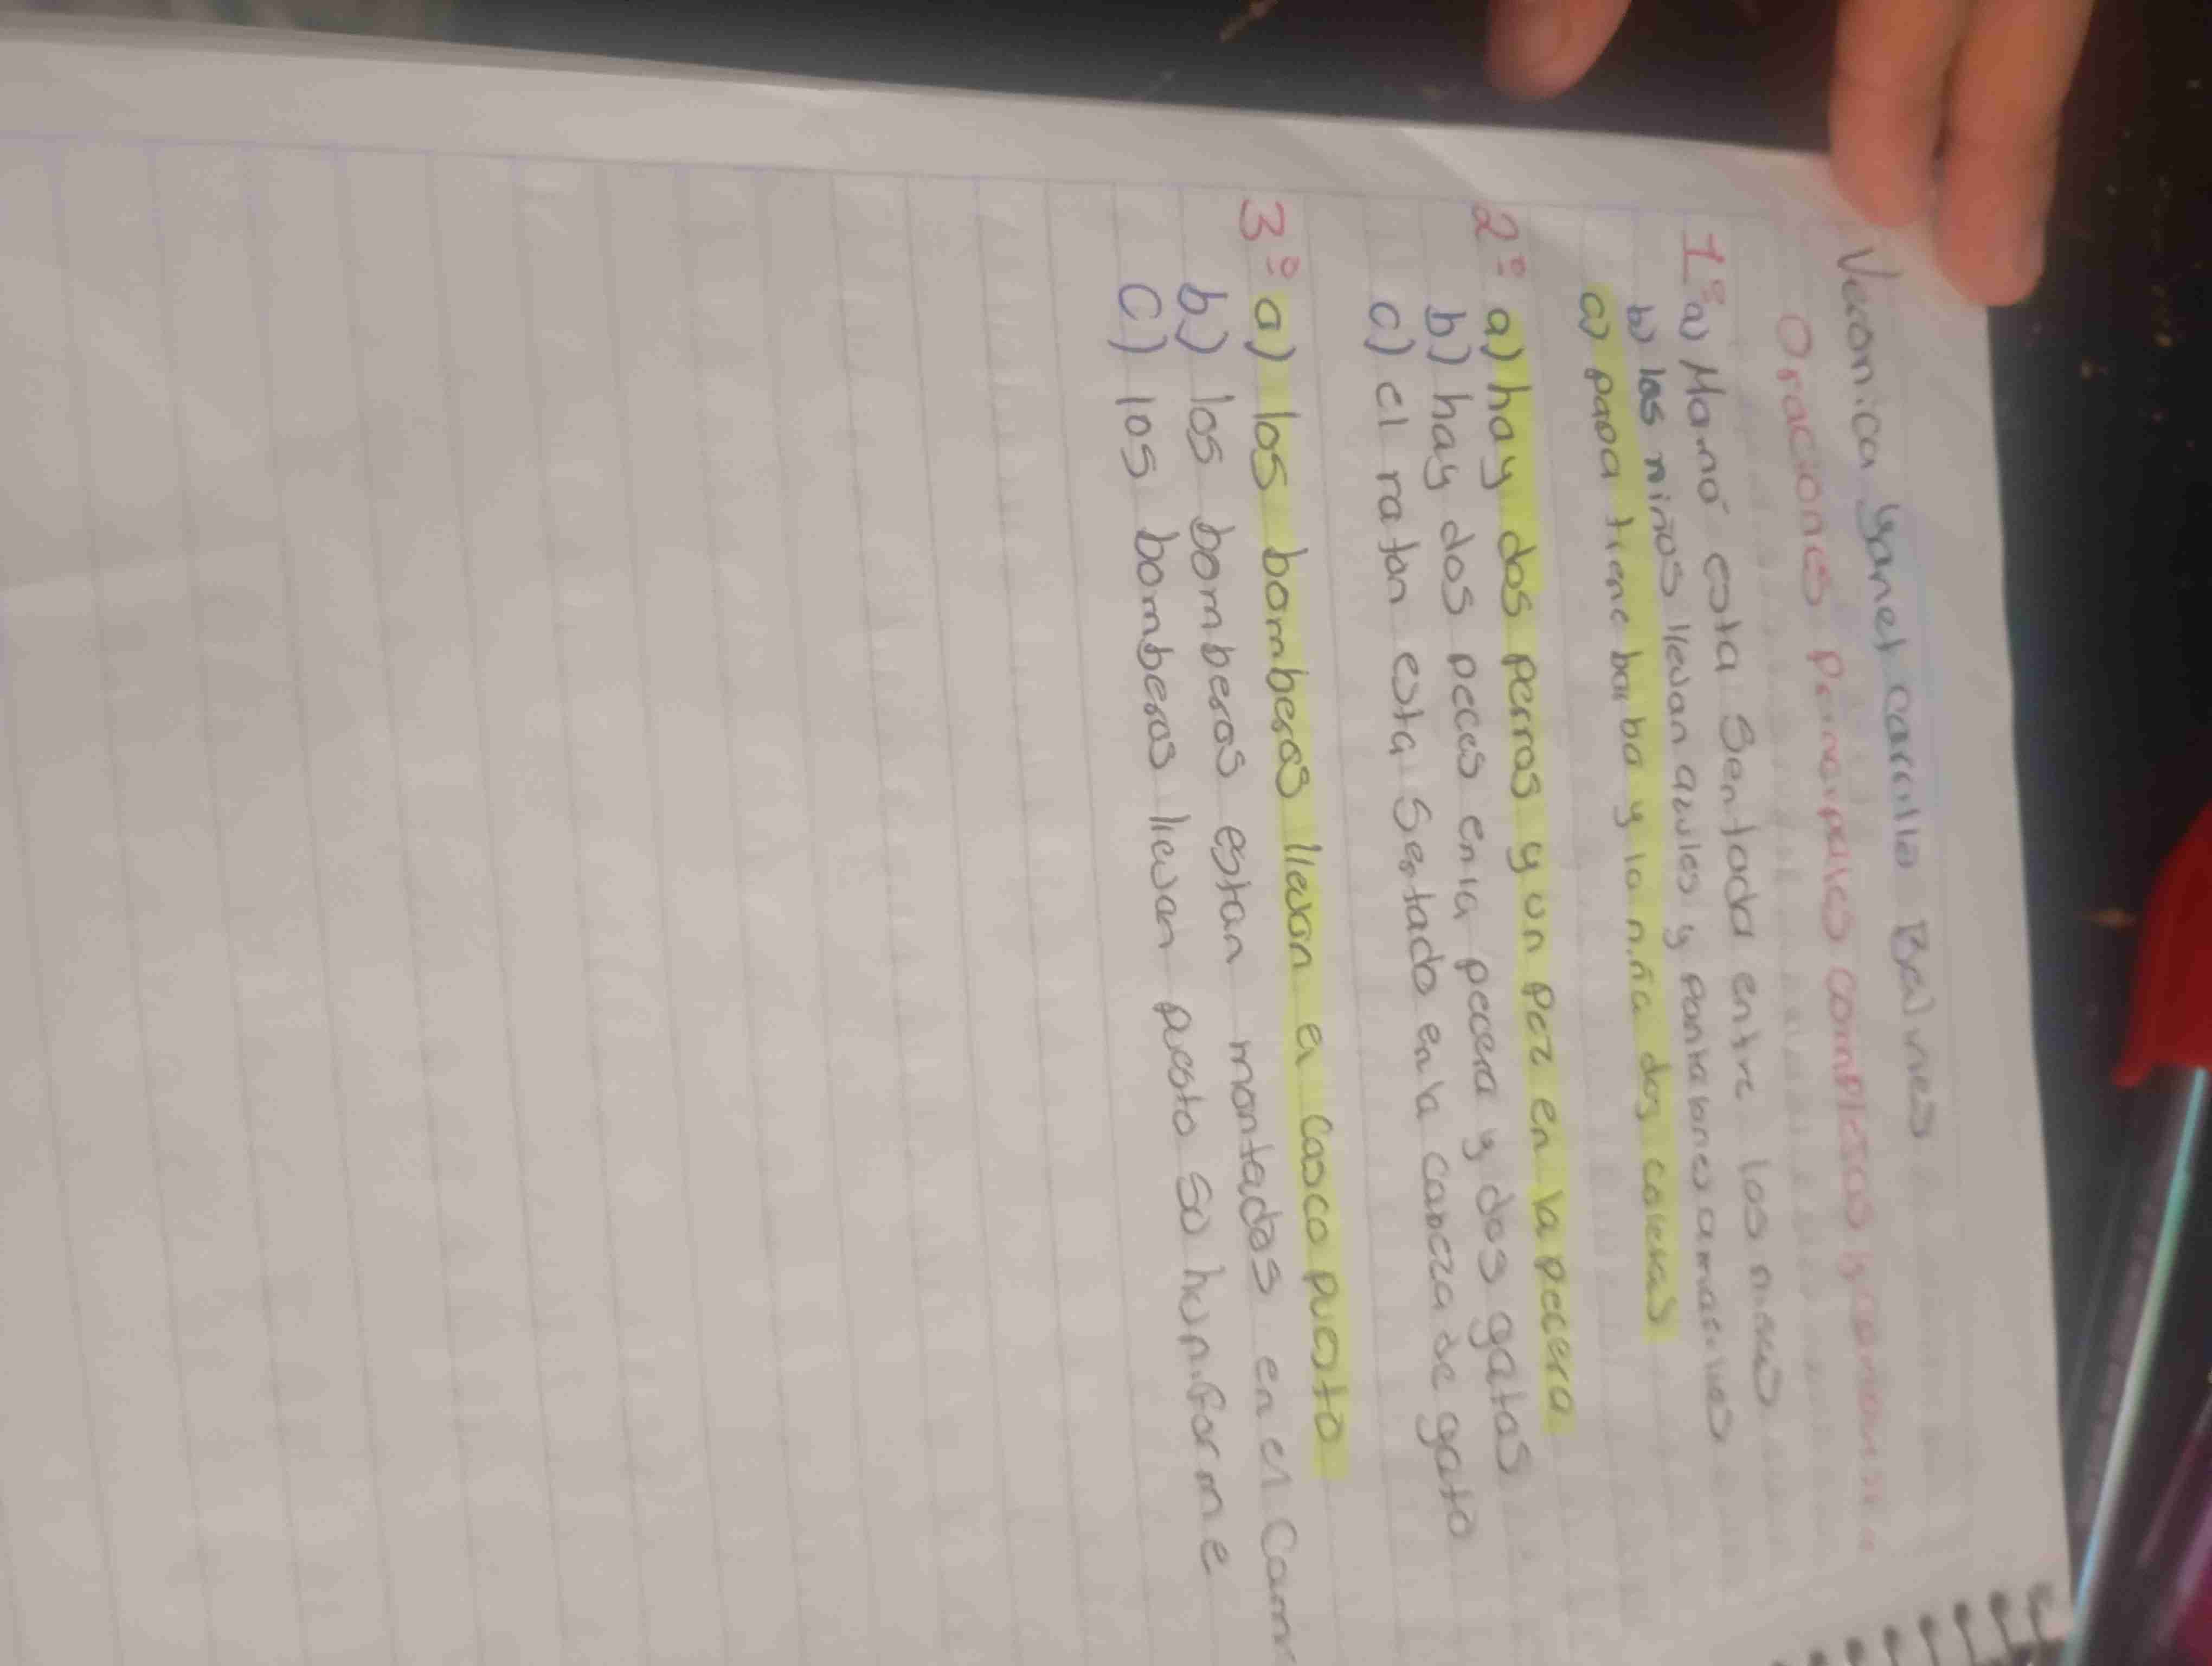 Veronica Yanet carrillo Balines
Oraciones Principales completas y
1º a) Mamá esta Sentada entre los niños
b) los niños llevan azules y pantalones amarillos
c) papa tiene barba y la niña dos coletas
2º a) hay dos perros y un pez en la pecera
b) hay dos peces en la pecera y dos gatos
c) el raton esta Sentado en la cabeza de gato
3º a) los bomberos llevan el casco puesto
b) los bomberos estan montados en el Cam
C) los bomberos llevan puesto su huniforme